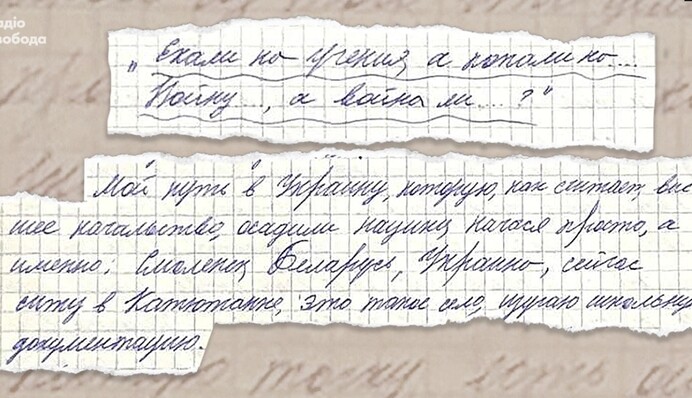 адіо
вобода
„Ехали на учения, а попали на...
Войну..., а война ли....?"
"Мой путь" в Украину, которую, как считает, выс
шее начальство, осадили нацики начался просто, а
именно: Смоленск, Беларусь, Украина, сейчас
сижу в Катюжанке, это такое село, изучаю школьную
документацию.